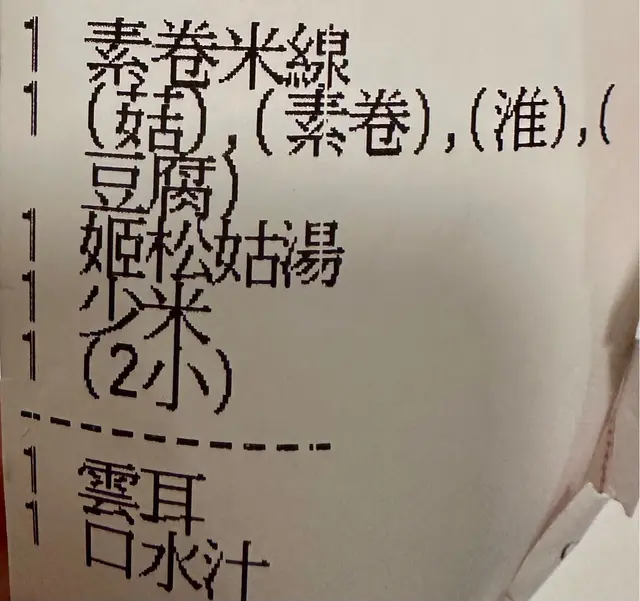 1 素卷米線
1 (菇),(素卷),(淮),(
豆腐)
1 姬松姑湯
1 少米
1 (2小)
1 雲耳
1 口水汁